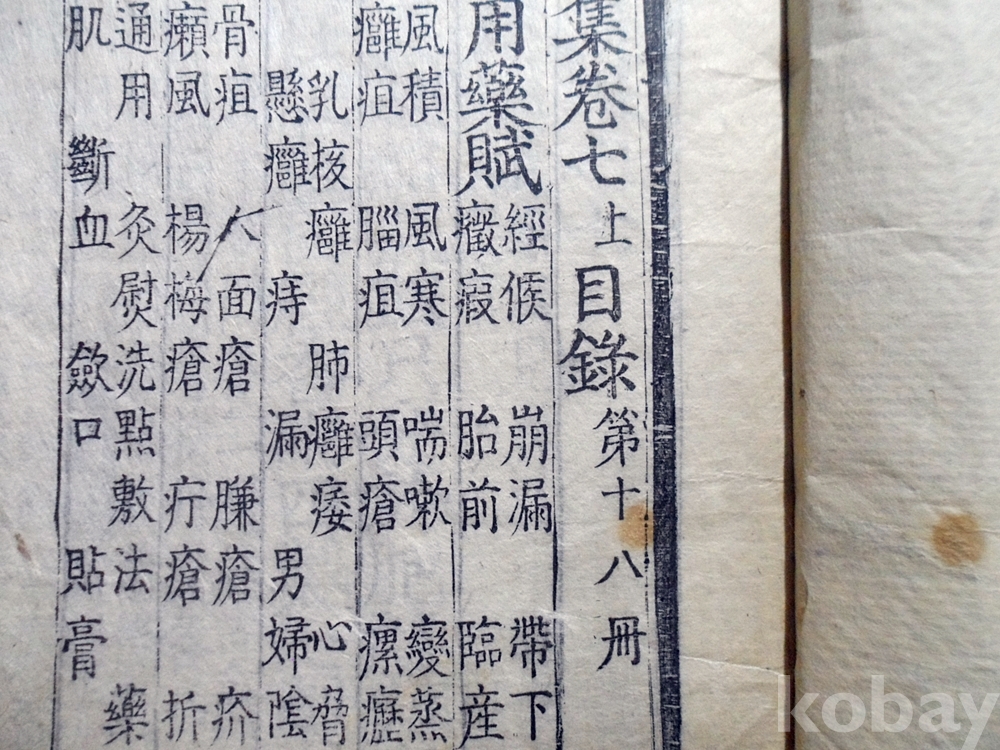 集卷七 上 目錄 第十八冊
用藥賦
經候 崩漏 帶下
癥瘕 胎前 臨産
風積 風寒 喘嗽 變蒸
癰疽 腦疽 頭瘡 瘰癧
乳核 癰 肺癰痿 心脅
懸癰 痔漏 男婦陰
骨疽 人面瘡 臁瘡 疥
癩風 楊梅瘡 疔瘡 折
通用 灸熨洗點敷法 藥
肌 斷血 斂口 貼膏
kobay